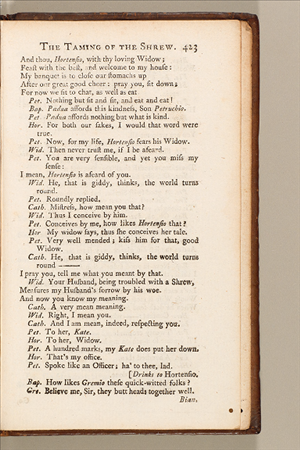 The Taming of the Shrew. 423
And thou, Hortensio, with thy loving Widow;
Feast with the best, and welcome to my house:
My banquet is to close our stomachs up
After our great good cheer: pray you, sit down;
For now we sit to chat, as well as eat
Pet. Nothing but sit and sit, and eat and eat!
Bap. Padua affords this kindness, Son Petruchio.
Pet Padua affords nothing but what is kind.
Hor. For both our sakes, I would that word were
true.
Pet. Now, for my life, Hortensio fears his Widow.
Wid. Then never trust me, if I be afeard.
Pet. You are very sensible, and yet you miss my
sense:
I mean, Hortensio is afeard of you.
Wid. He, that is giddy, thinks, the world turns
round.
Pet. Roundly replied.
Cath. Mistress, how mean you that?
Wid. Thus I conceive by him.
Pet. Conceives by me, how likes Hortensio that?
Hor My widow says, thus she conceives her tale.
Pet. Very well mended; kiss him for that, good
Widow.
Cath. He, that is giddy, thinks, the world turns
round ——
I pray you, tell me what you meant by that.
Wid. Your Husband, being troubled with a Shrew,
Measures my Husband's sorrow by his woe.
And now you know my meaning.
Cath. A very mean meaning.
Wid. Right, I mean you.
Cath. And I am mean, indeed, respecting you.
Pet. To her, Kate.
Hor. To her, Widow.
Pet. A hundred marks, my Kate does put her down.
Hor. That's my office.
Pet. Spoke like an Officer; ha' to thee, lad.
[Drinks to Hortensio.
Bap. How likes Gremio these quick-witted folks?
Gre. Believe me, Sir, they butt heads together well.
Bian.